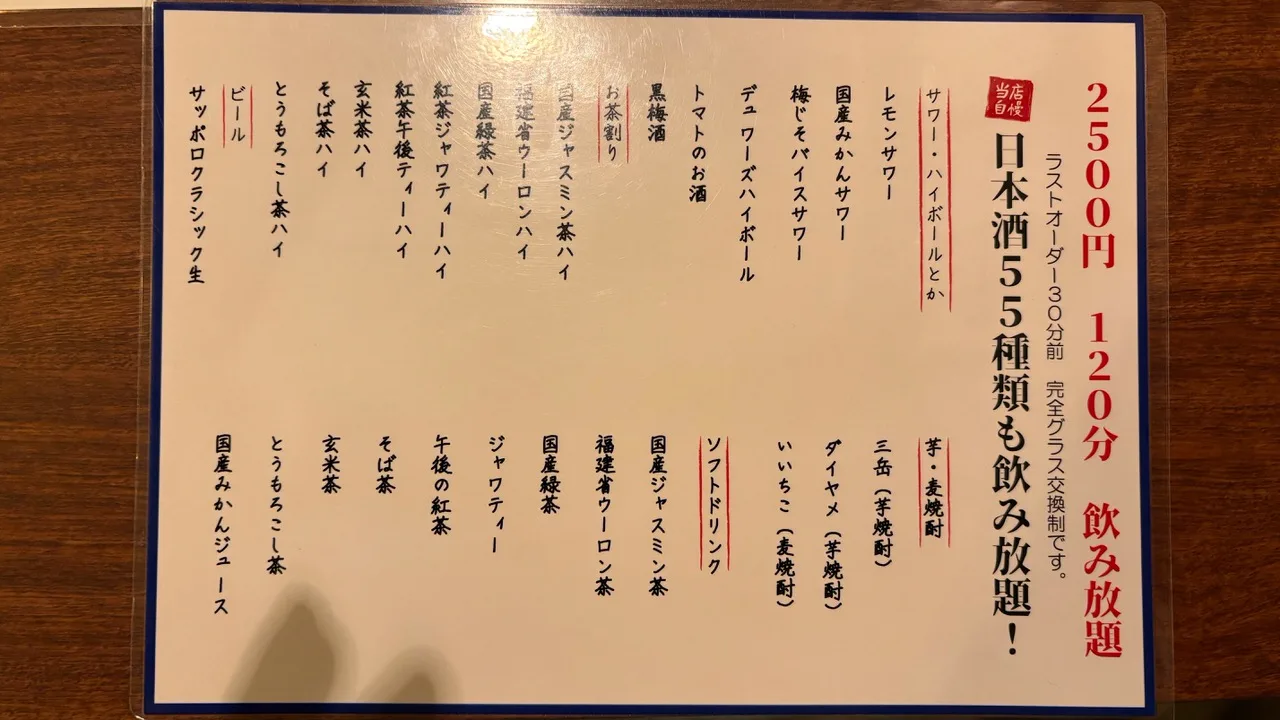 2500円 120分 飲み放題
ラストオーダー30分前 完全グラス交換制です。
当店自慢
日本酒55種類も飲み放題！
サワー・ハイボールとか
レモンサワー
国産みかんサワー
梅じそバイスサワー
デュワーズハイボール
トマトのお酒
黒梅酒
お茶割り
国産ジャスミン茶ハイ
福建省ウーロンハイ
国産緑茶ハイ
紅茶ジャワティーハイ
紅茶午後ティーハイ
玄米茶ハイ
そば茶ハイ
とうもろこし茶ハイ
ビール
サッポロクラシック生
芋・麦焼酎
三岳（芋焼酎）
ダイヤメ（芋焼酎）
いいちこ（麦焼酎）
ソフトドリンク
国産ジャスミン茶
福建省ウーロン茶
国産緑茶
ジャワティー
午後の紅茶
そば茶
玄米茶
とうもろこし茶
国産みかんジュース